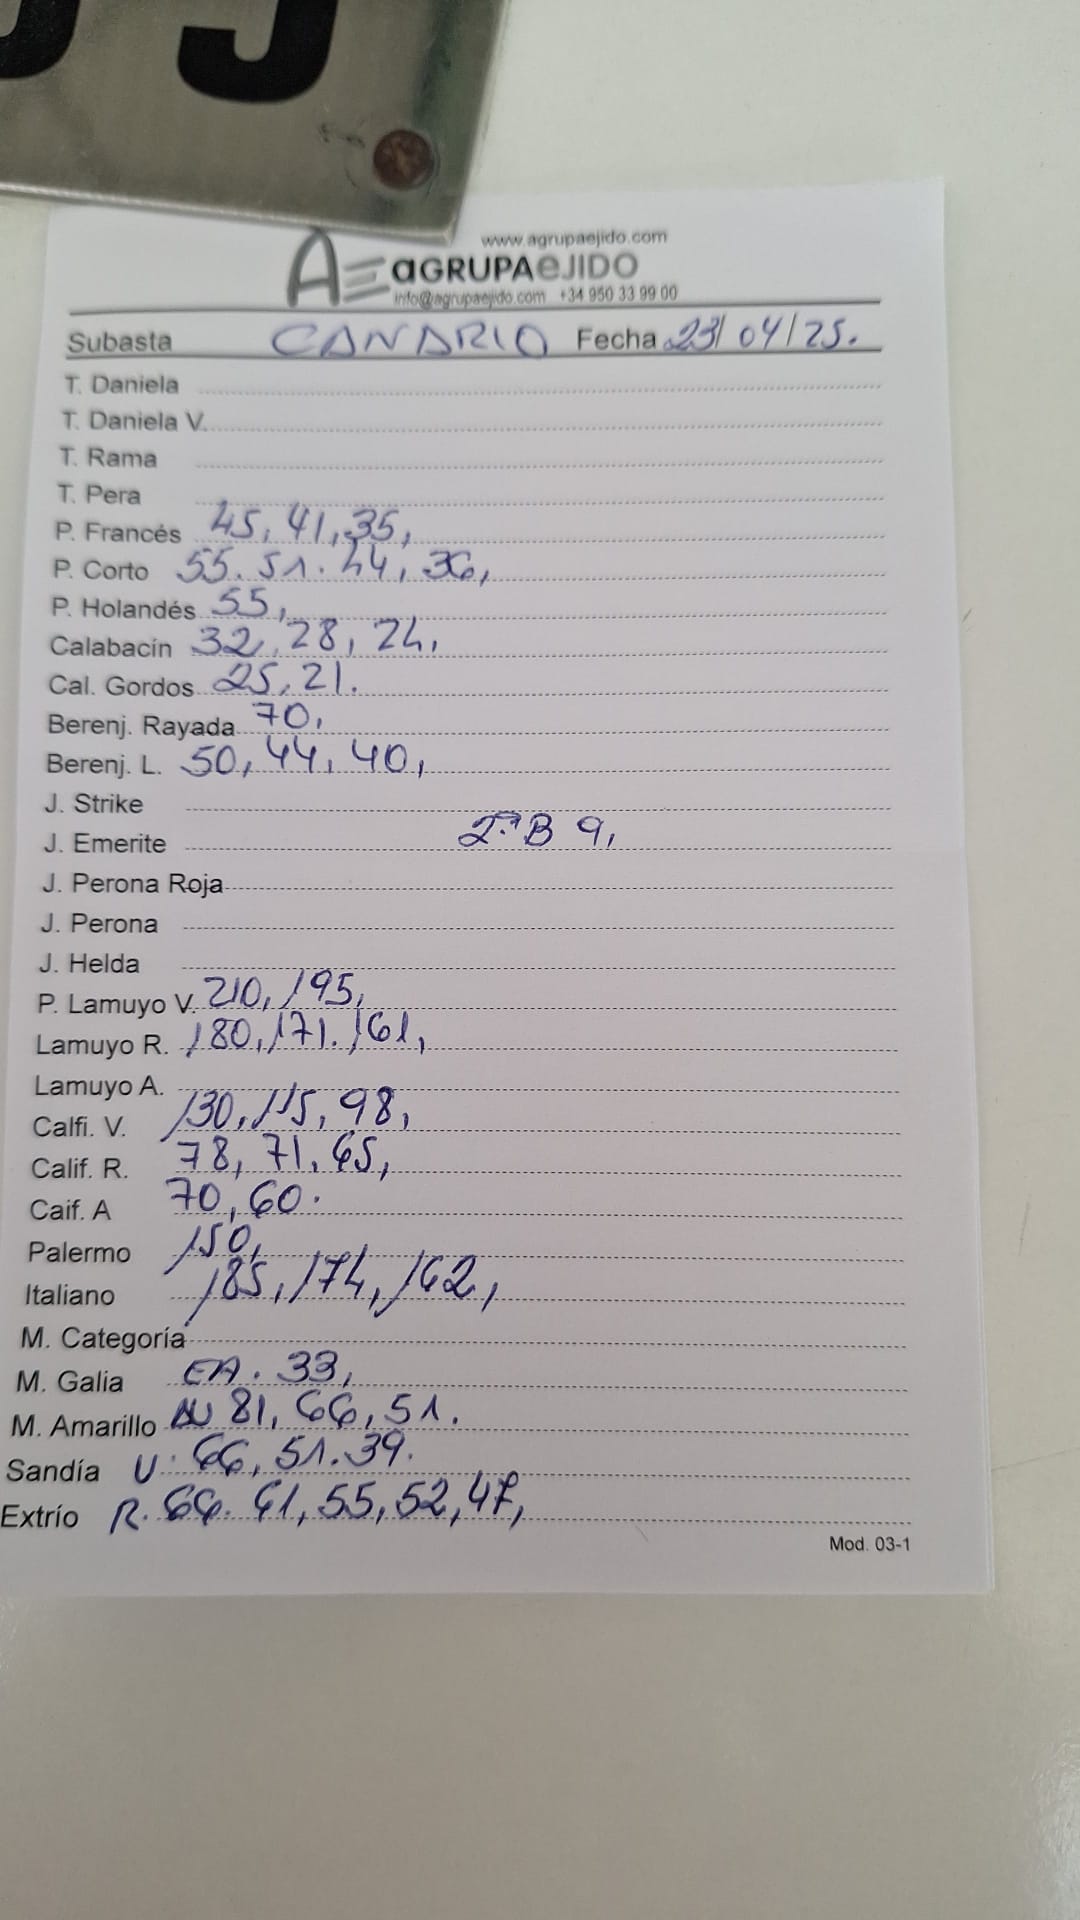 www.agrupaejido.com
AE aGRUPAeJIDO
info@agrupaejido.com +34 950 33 99 00
Subasta CANARIO Fecha 23/04/25.
T. Daniela
T. Daniela V.
T. Rama
T. Pera
P. Francés 45, 41, 35,
P. Corto 55. 51. 44, 36,
P. Holandés 55,
Calabacín 32, 28, 24,
Cal. Gordos 25, 21.
Berenj. Rayada 70,
Berenj. L. 50, 44, 40,
J. Strike
J. Emerite 2ª B 9,
J. Perona Roja
J. Perona
J. Helda
P. Lamuyo V. 210, 195,
Lamuyo R. 180, 171. 161,
Lamuyo A.
Calfi. V. 130, 115, 98,
Calif. R. 78, 71, 65,
Caif. A 70, 60.
Palermo 150,
Italiano 185, 174, 162,
M. Categoría
M. Galia EA. 33,
M. Amarillo 81, 66, 51.
Sandía U. 66, 51. 39.
Extrío R. 66. 61, 55, 52, 47,
Mod. 03-1